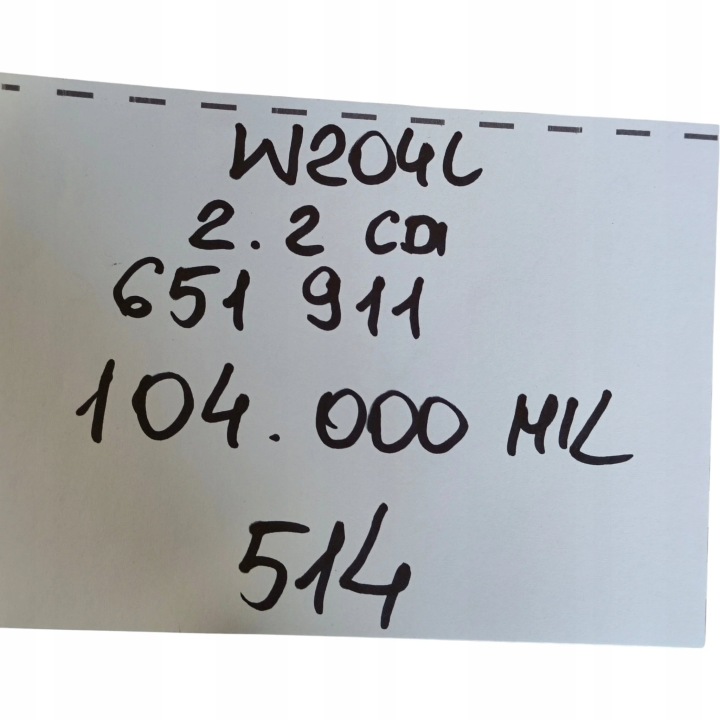 W204L
2.2 CDI
651 911
104.000 MIL
514